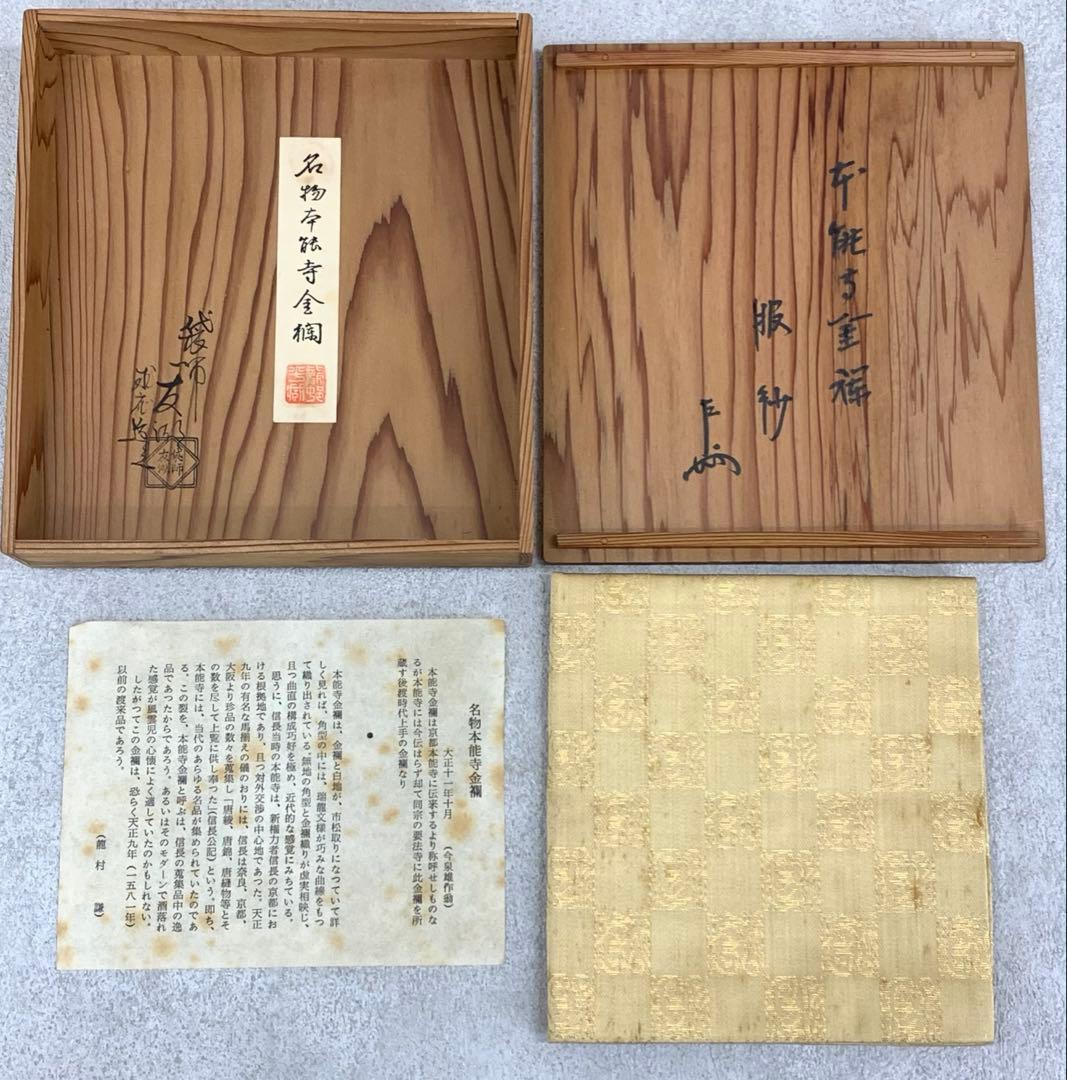 名物本能寺金襴
袋師
友湖
本能寺金襴
服紗
名物本能寺金襴
大正十一年十月
(今泉雄作翁)
本能寺金襴は京都本能寺に伝来するより称呼せしものな
るが本能寺には今伝はらず却て同宗の要法寺に此金襴を所
蔵す後渡時代上手の金襴なり
本能寺金襴は、金襴と白地が、市松取りになつていて詳
しく見れば、角型の中には、瑞龍文様が巧みな曲線をもつ
て織り出されている。無地の角型と金襴織りが虚実相映じ、
且つ曲直の構成巧好を極め、近代的な感覚にみちている。
思うに、信長当時の本能寺は、新権力者信長の京都にお
ける根拠地であり、且つ対外交渉の中心地であつた。天正
九年の有名な馬揃えの儀のおりには、信長は奈良、京都、
大阪より珍品の数々を蒐集し「唐綾、唐錦、唐縫物等とそ
の数を尽して上覧に供し奉つた」(信長公記)という。即ち、
本能寺には、当代のあらゆる名品が集められていたのであ
る。この裂を、本能寺金襴と呼ぶは、信長の蒐集品中の逸
品であつたからであろう。あるいはそのモダーンで洒落れ
た感覚が風雲児の心懐によく適していたのかもしれない。
したがつてこの金襴は、恐らく天正九年(一五八一年)
以前の渡来品であろう。
(龍村 謙)